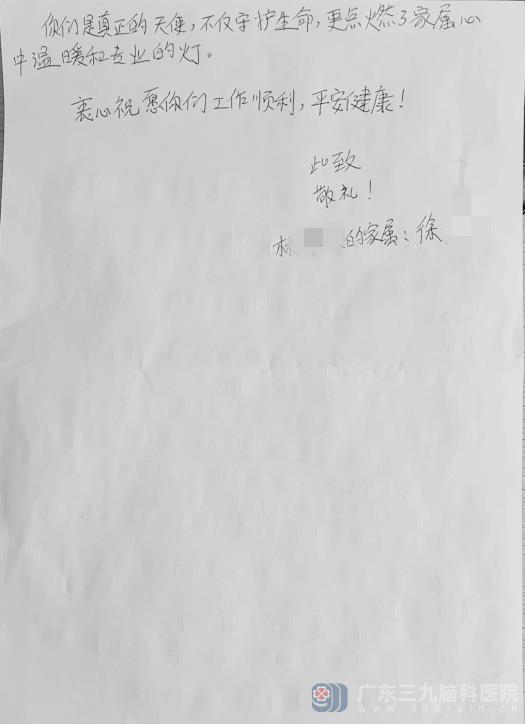 你们是真正的天使，不仅守护生命，更点燃了家属心
中温暖和专业的灯。
衷心祝愿你们工作顺利，平安健康！
此致
敬礼！
林 的家属：徐
广东三九脑科医院
www.39brain.cn